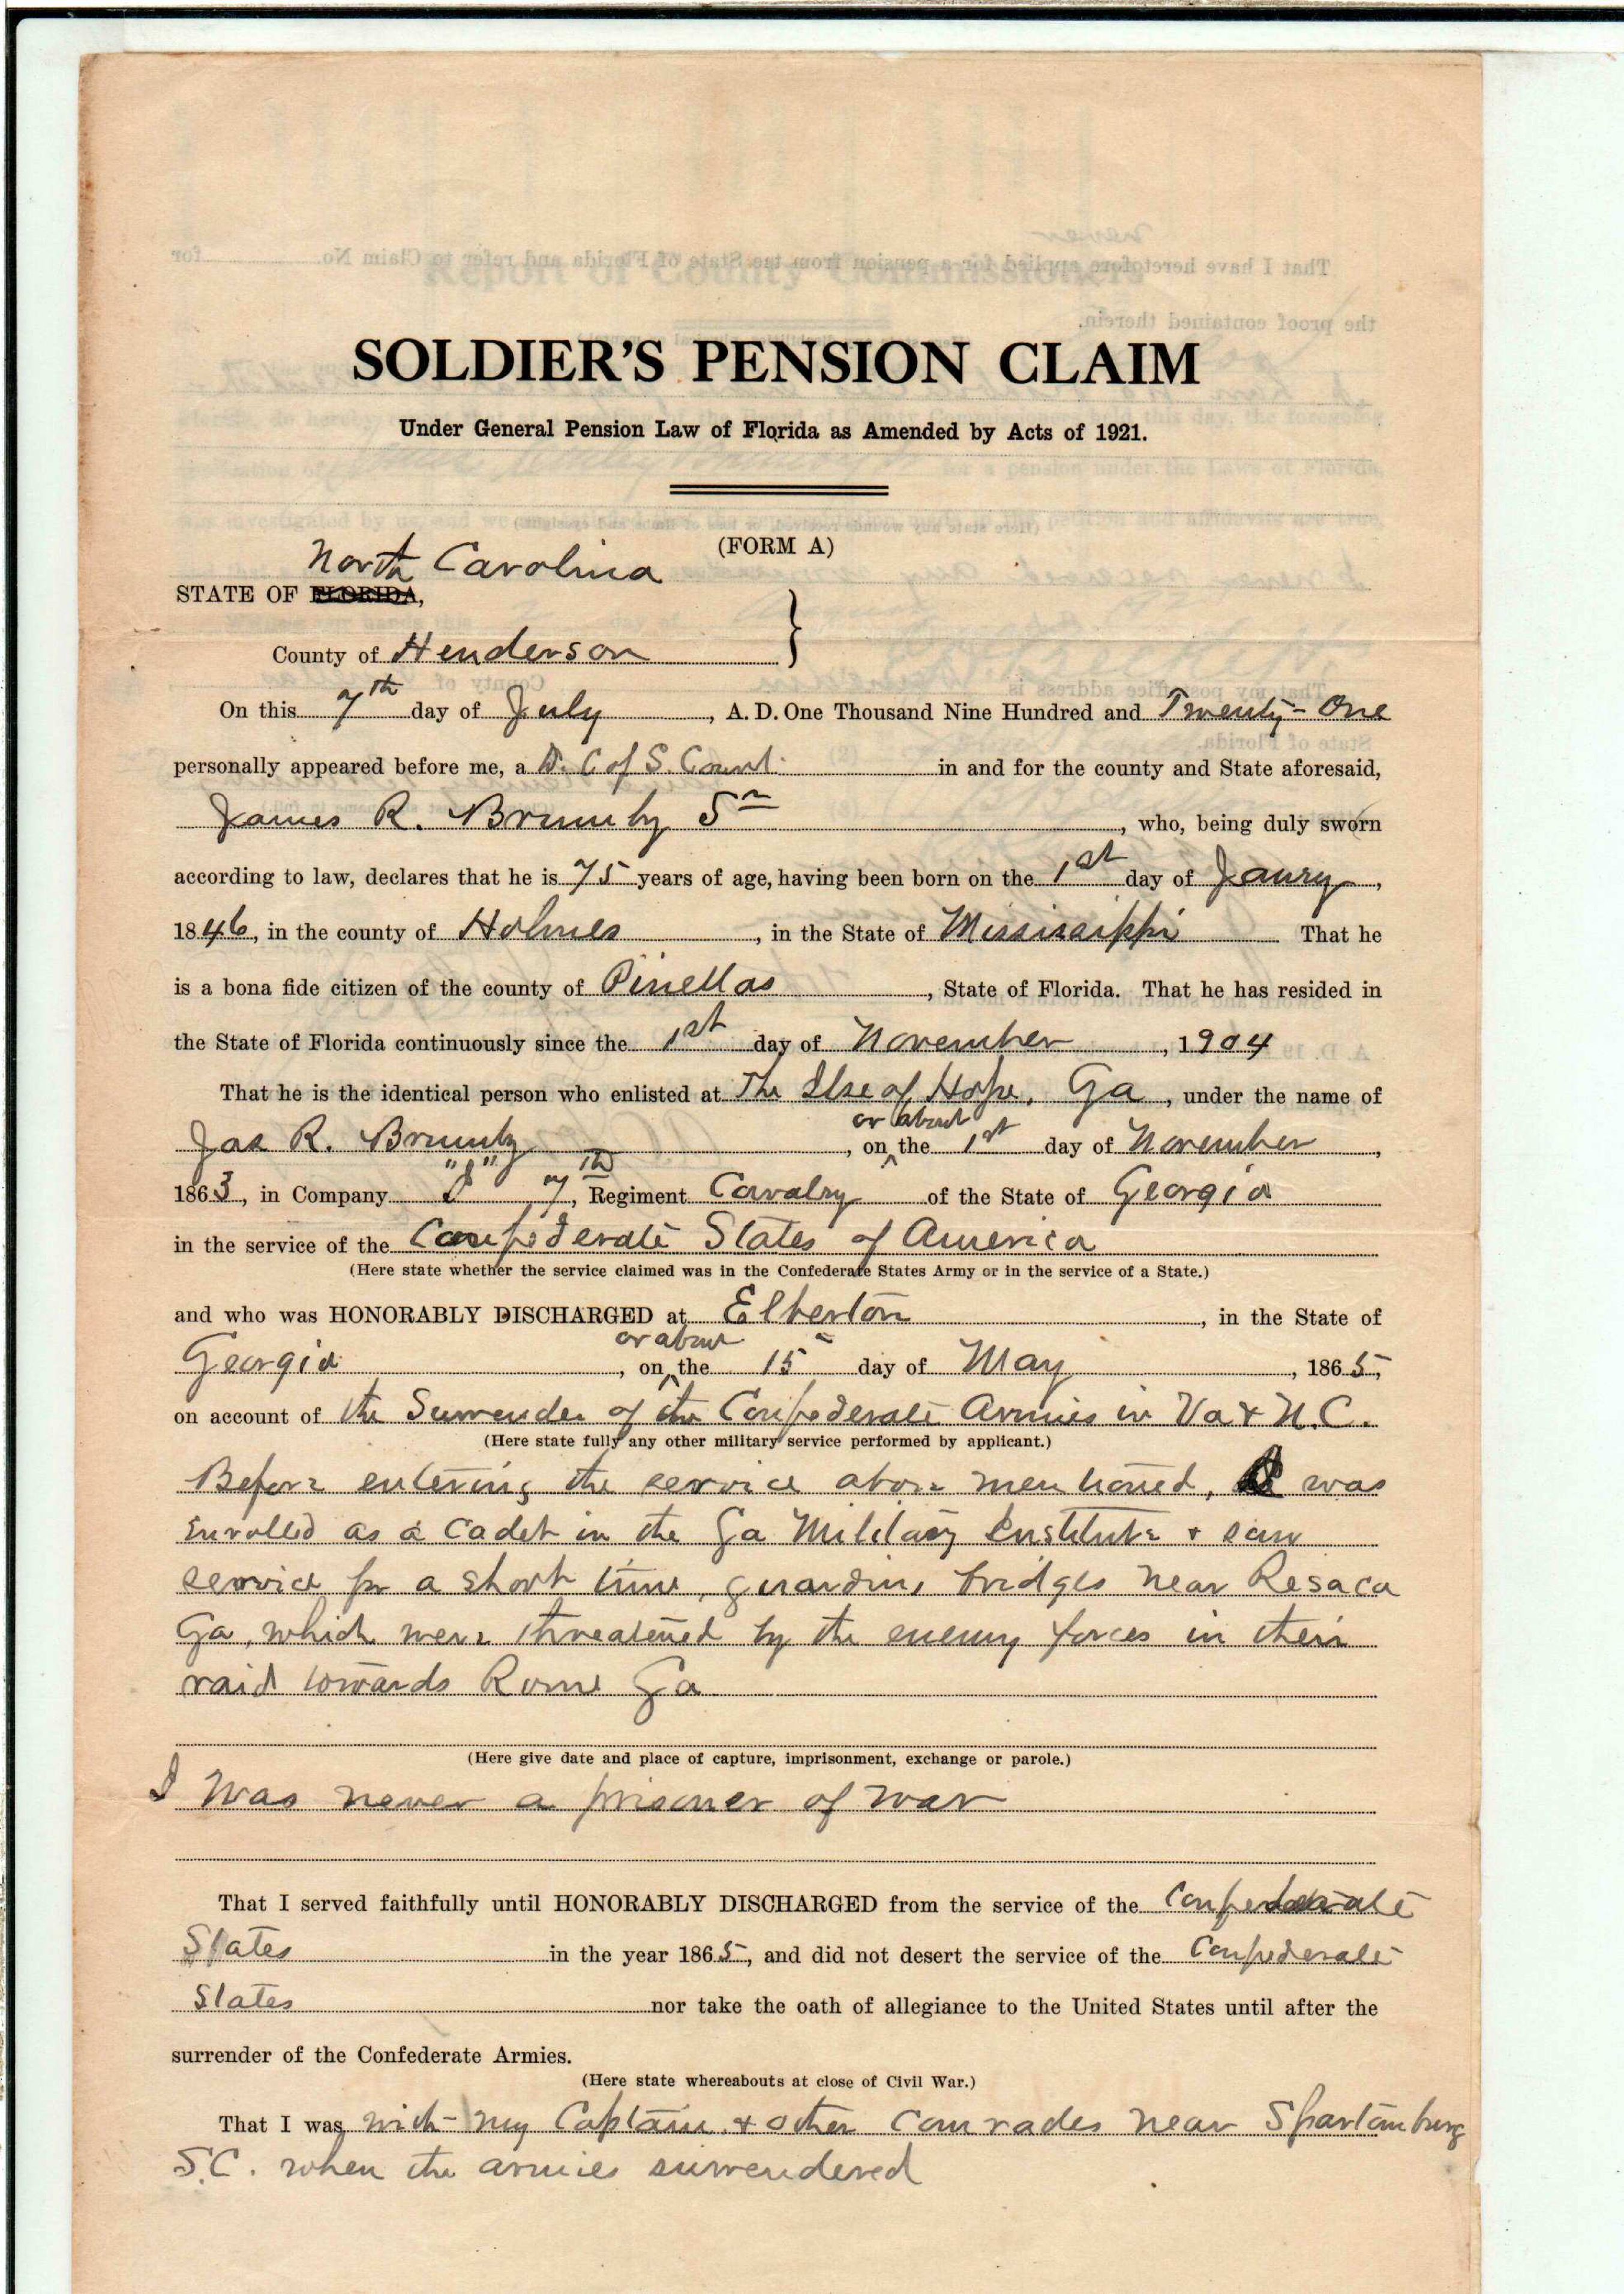 SOLDIER'S PENSION CLAIM
Under General Pension Law of Florida as Amended by Acts of 1921.
(FORM A)
North Carolina
STATE OF FLORIDA,
County of Henderson
On this 7th day of July, A. D. One Thousand Nine Hundred and Twenty-One
personally appeared before me, a D. C of S. Court in and for the county and State aforesaid,
James R. Brumby Sr, who, being duly sworn
according to law, declares that he is 75 years of age, having been born on the 1st day of Janry,
1846, in the county of Holmes, in the State of Mississippi That he
is a bona fide citizen of the county of Pinellas, State of Florida. That he has resided in
the State of Florida continuously since the 1st day of November, 1904
That he is the identical person who enlisted at The Isle of Hope, Ga, under the name of
or about
Jas R. Brumby, on the 1st day of November,
1863, in Company 7th, Regiment Cavalry of the State of Georgia
in the service of the Confederate States of America
(Here state whether the service claimed was in the Confederate States Army or in the service of a State.)
and who was HONORABLY DISCHARGED at Elberton, in the State of
or about
Georgia, on the 15 day of May, 1865,
on account of the Surrender of the Confederate Armies in Va & N.C.
(Here state fully any other military service performed by applicant.)
Before entering the service above mentioned, I was
enrolled as a Cadet in the Ga Military Institute & saw
service for a short time, guarding bridges near Resaca
Ga, which were threatened by the enemy forces in their
raid towards Rome Ga
(Here give date and place of capture, imprisonment, exchange or parole.)
I was never a prisoner of war
That I served faithfully until HONORABLY DISCHARGED from the service of the Confederate
States in the year 1865, and did not desert the service of the Confederate
States nor take the oath of allegiance to the United States until after the
surrender of the Confederate Armies.
(Here state whereabouts at close of Civil War.)
That I was with my Captain & other Comrades near Spartanburg
S.C. when the armies surrendered